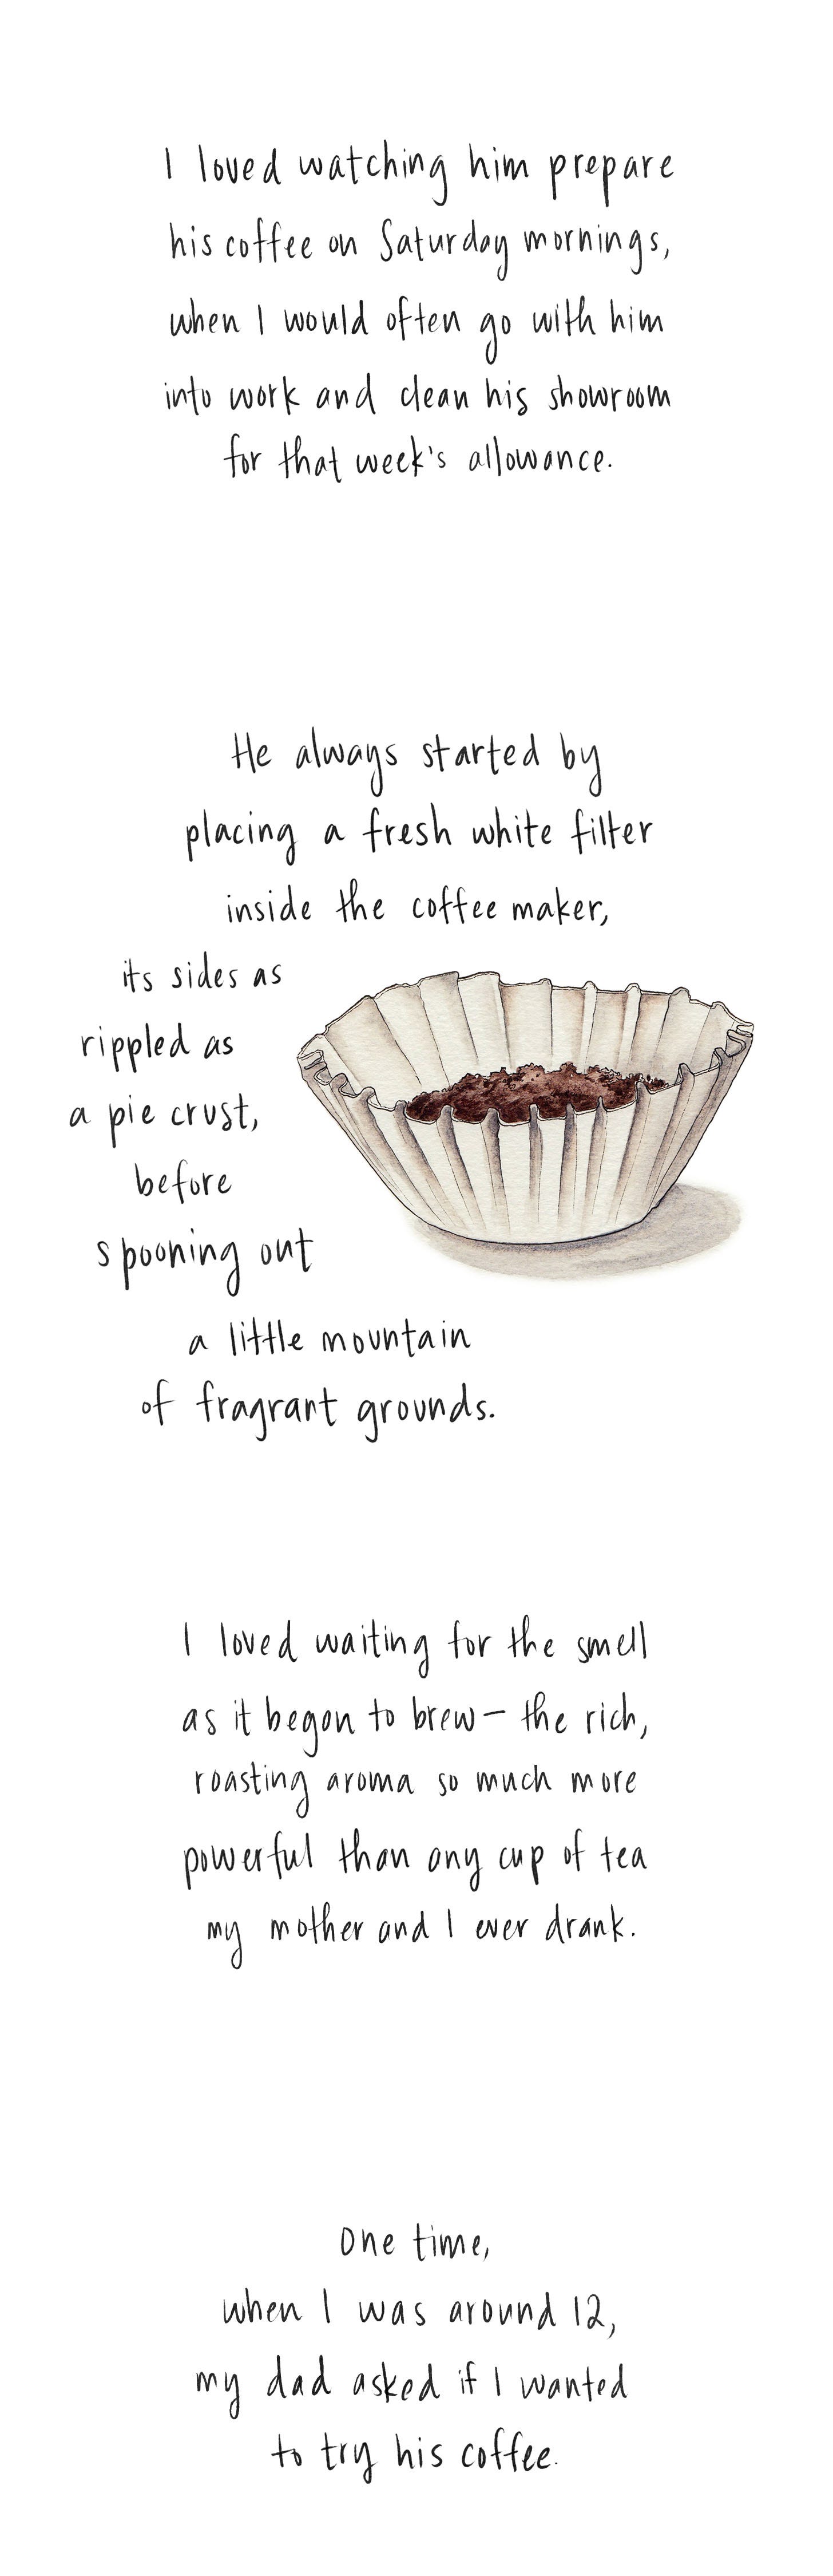 I loved watching him prepare
his coffee on Saturday mornings,
when I would often go with him
into work and clean his showroom
for that week's allowance.
He always started by
placing a fresh white filter
inside the coffee maker,
its sides as
rippled as
a pie crust,
before
spooning out
a little mountain
of fragrant grounds.
I loved waiting for the smell
as it began to brew— the rich,
roasting aroma so much more
powerful than any cup of tea
my mother and I ever drank.
One time,
when I was around 12,
my dad asked if I wanted
to try his coffee.